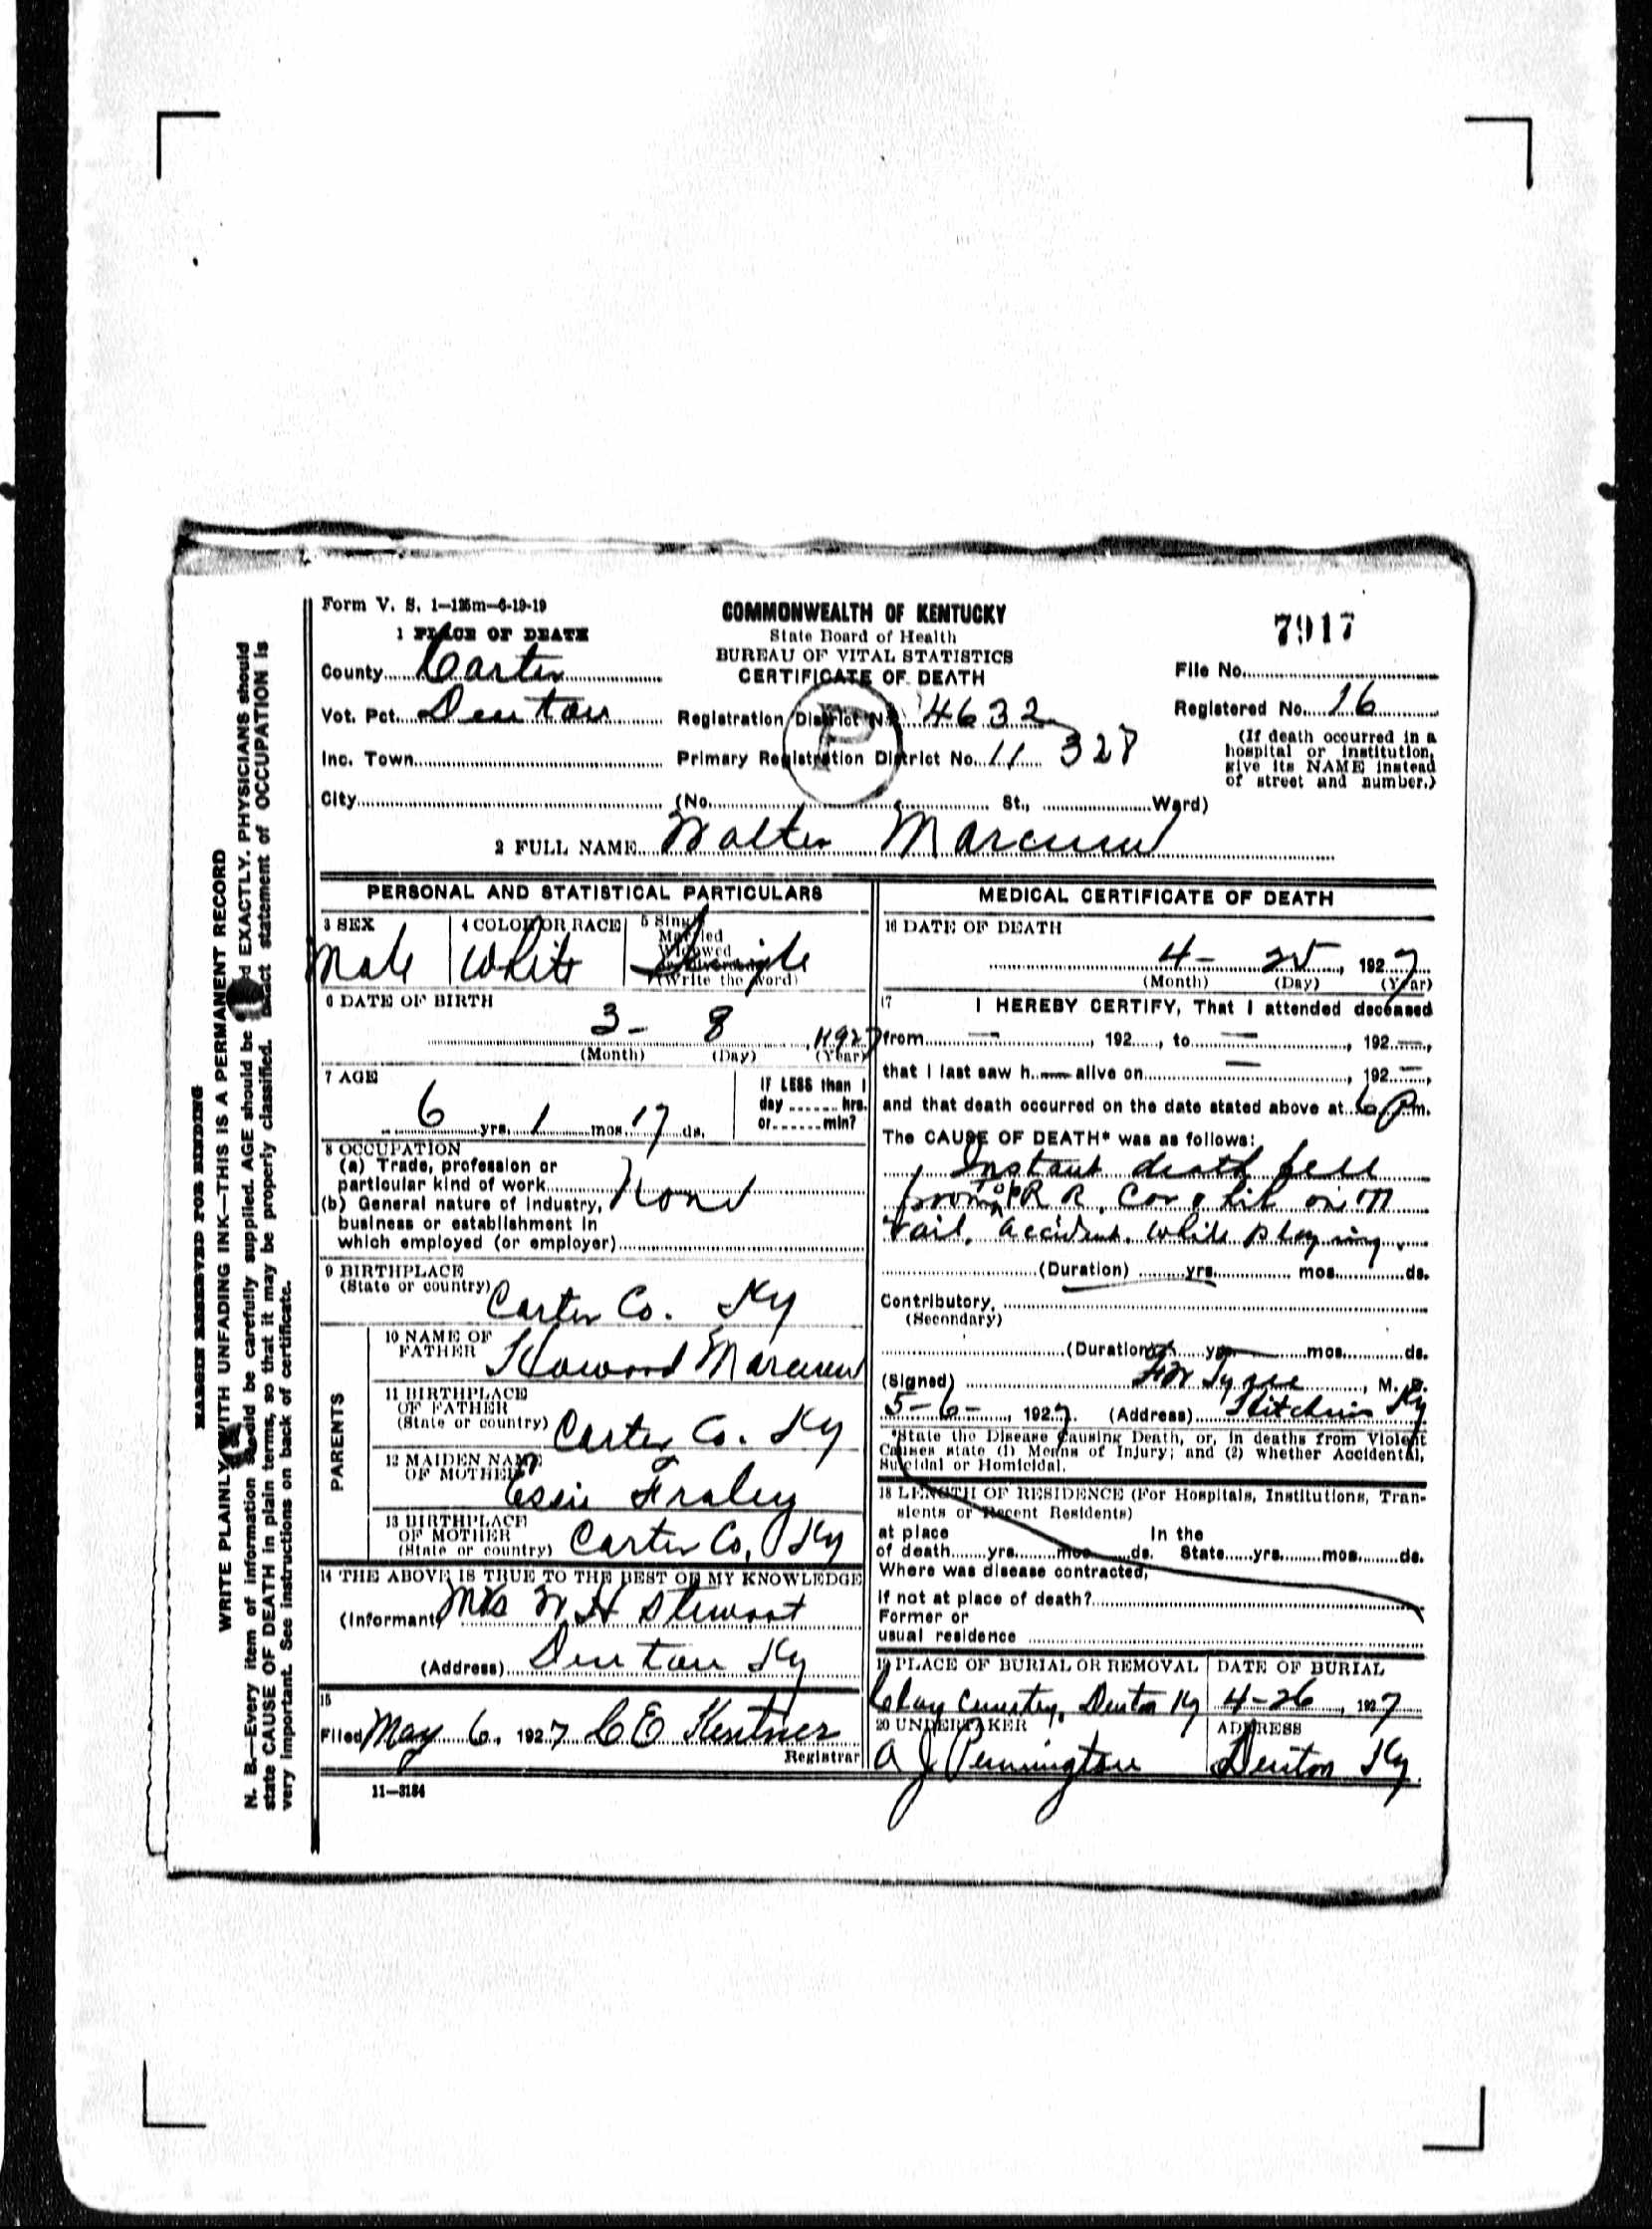 Form V. S. 1—125m—6-19-19
COMMONWEALTH OF KENTUCKY
State Board of Health
BUREAU OF VITAL STATISTICS
CERTIFICATE OF DEATH
7917
1 PLACE OF DEATH
County Carter
File No.
Vot. Pct. Denton
Registration District No. 4632
Registered No. 16
Inc. Town
Primary Registration District No. 11 328
(If death occurred in a
hospital or institution,
give its NAME instead
of street and number.)
City (No. St., Ward)
P
2 FULL NAME Walter Marcum
PERSONAL AND STATISTICAL PARTICULARS
3 SEX
Male
4 COLOR OR RACE
White
5 Single
Married
Widowed
or Divorced
(Write the word)
Single
6 DATE OF BIRTH
3- 8 , 1927
(Month) (Day) (Year)
7 AGE
6 yrs. 1 mos. 17 ds.
IF LESS than 1
day hrs.
or min?
8 OCCUPATION
(a) Trade, profession or
particular kind of work None
(b) General nature of industry,
business or establishment in
which employed (or employer)
9 BIRTHPLACE
(State or country) Carter Co. Ky
PARENTS
10 NAME OF
FATHER Howard Marcum
11 BIRTHPLACE
OF FATHER
(State or country) Carter Co. Ky
12 MAIDEN NAME
OF MOTHER Essie Fraley
13 BIRTHPLACE
OF MOTHER
(State or country) Carter Co, Ky
14 THE ABOVE IS TRUE TO THE BEST OF MY KNOWLEDGE
(Informant) Mrs W H Stewart
(Address) Denton Ky
15
Filed May 6, 1927 C E Kentner
Registrar
11—3184
MEDICAL CERTIFICATE OF DEATH
16 DATE OF DEATH
4- 25 , 1927
(Month) (Day) (Year)
17 I HEREBY CERTIFY, That I attended deceased
from — , 192 , to — , 192 —,
that I last saw h — alive on — , 192 —,
and that death occurred on the date stated above at 6 P m.
The CAUSE OF DEATH* was as follows:
Instant death fell
from top R R. Car & hit on
rail, accident. while playing.
(Duration) yrs. mos. ds.
Contributory
(Secondary)
(Duration) yrs. mos. ds.
(Signed) , M. D.
5-6- , 1927 (Address) Hitchins Ky
*State the Disease Causing Death, or, in deaths from Violent
Causes state (1) Means of Injury; and (2) whether Accidental,
Suicidal or Homicidal.
18 LENGTH OF RESIDENCE (For Hospitals, Institutions, Tran-
sients or Recent Residents)
at place In the
of death yrs. mos. ds. State yrs. mos. ds.
Where was disease contracted,
if not at place of death?
Former or
usual residence
19 PLACE OF BURIAL OR REMOVAL
DATE OF BURIAL
Clay Cemetery, Denton Ky 4-26 , 1927
20 UNDERTAKER
ADDRESS
A J Pennington Denton Ky.
MARGIN RESERVED FOR BINDING
WRITE PLAINLY WITH UNFADING INK—THIS IS A PERMANENT RECORD
N. B.—Every item of information should be carefully supplied. AGE should be stated EXACTLY. PHYSICIANS should
state CAUSE OF DEATH in plain terms, so that it may be properly classified. Exact statement of OCCUPATION is
very important. See instructions on back of certificate.